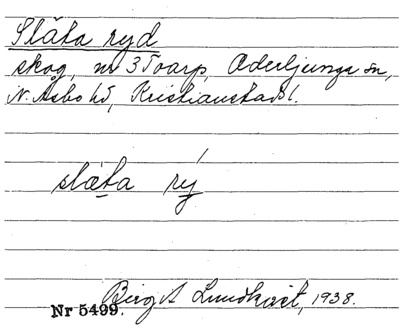 Släta ryd
skog, nr 3 Toarp, Oderljunga sn,
N. Åsbo hd, Kristianstads l.
slæ̱ta rý
Birgit Lundkvist, 1938.
Nr 5499.